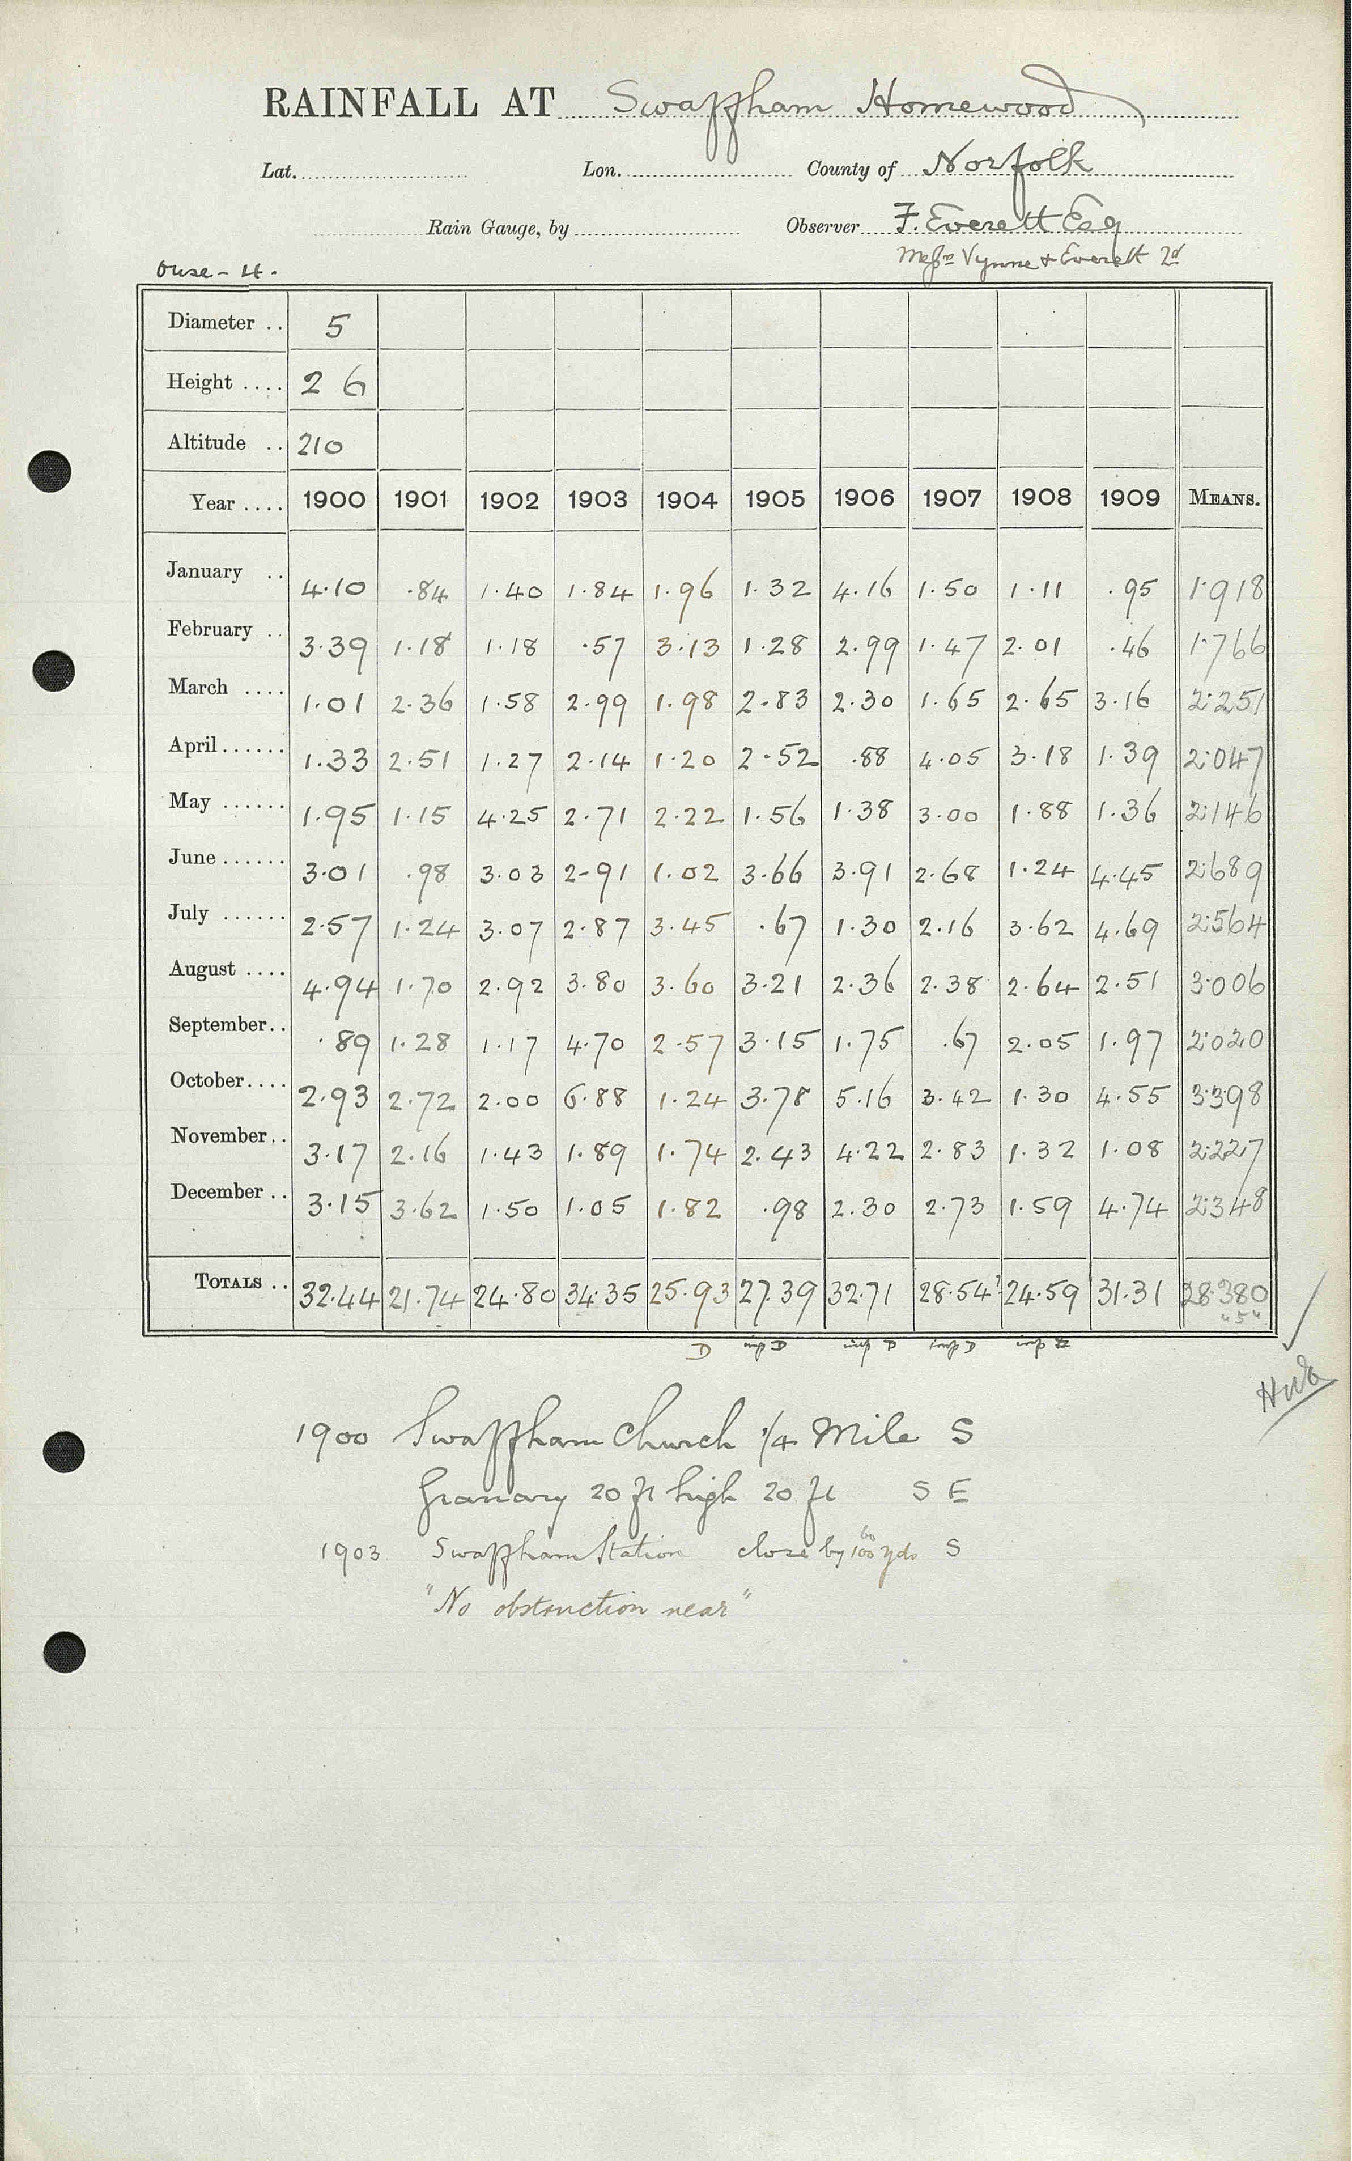 RAINFALL AT Swaffham Homewood
Lat. Lon. County of Norfolk
Rain Gauge, by Observer F. Everett Esq
Messrs Vynne & Everett Ld
Ouse - 4.
Diameter .. 5
Height .... 2 6
Altitude .. 210
Year .... 1900 1901 1902 1903 1904 1905 1906 1907 1908 1909 MEANS.
January .. 4.10 .84 1.40 1.84 1.96 1.32 4.16 1.50 1.11 .95 1.918
February .. 3.39 1.18 1.18 .57 3.13 1.28 2.99 1.47 2.01 .46 1.766
March .... 1.01 2.36 1.58 2.99 1.98 2.83 2.30 1.65 2.65 3.16 2.251
April...... 1.33 2.51 1.27 2.14 1.20 2.52 .88 4.05 3.18 1.39 2.047
May ...... 1.95 1.15 4.25 2.71 2.22 1.56 1.38 3.00 1.88 1.36 2.146
June...... 3.01 .98 3.03 2.91 1.02 3.66 3.91 2.68 1.24 4.45 2.689
July ...... 2.57 1.24 3.07 2.87 3.45 .67 1.30 2.16 3.62 4.69 2.564
August .... 4.94 1.70 2.92 3.80 3.60 3.21 2.36 2.38 2.64 2.51 3.006
September.. .89 1.28 1.17 4.70 2.57 3.15 1.75 .67 2.05 1.97 2.020
October.... 2.93 2.72 2.00 6.88 1.24 3.78 5.16 3.42 1.30 4.55 3.398
November.. 3.17 2.16 1.43 1.89 1.74 2.43 4.22 2.83 1.32 1.08 2.227
December .. 3.15 3.62 1.50 1.05 1.82 .98 2.30 2.73 1.59 4.74 2.348
TOTALS .. 32.44 21.74 24.80 34.35 25.93 27.39 32.71 28.54? 24.59 31.31 28.380
"5"
D imp D imp D imp D imp
1900 Swaffham Church 1/4 Mile S
Granary 20 ft high 20 ft S E
1903 Swaffham Station close by 60 100 yds S
"No obstruction near"